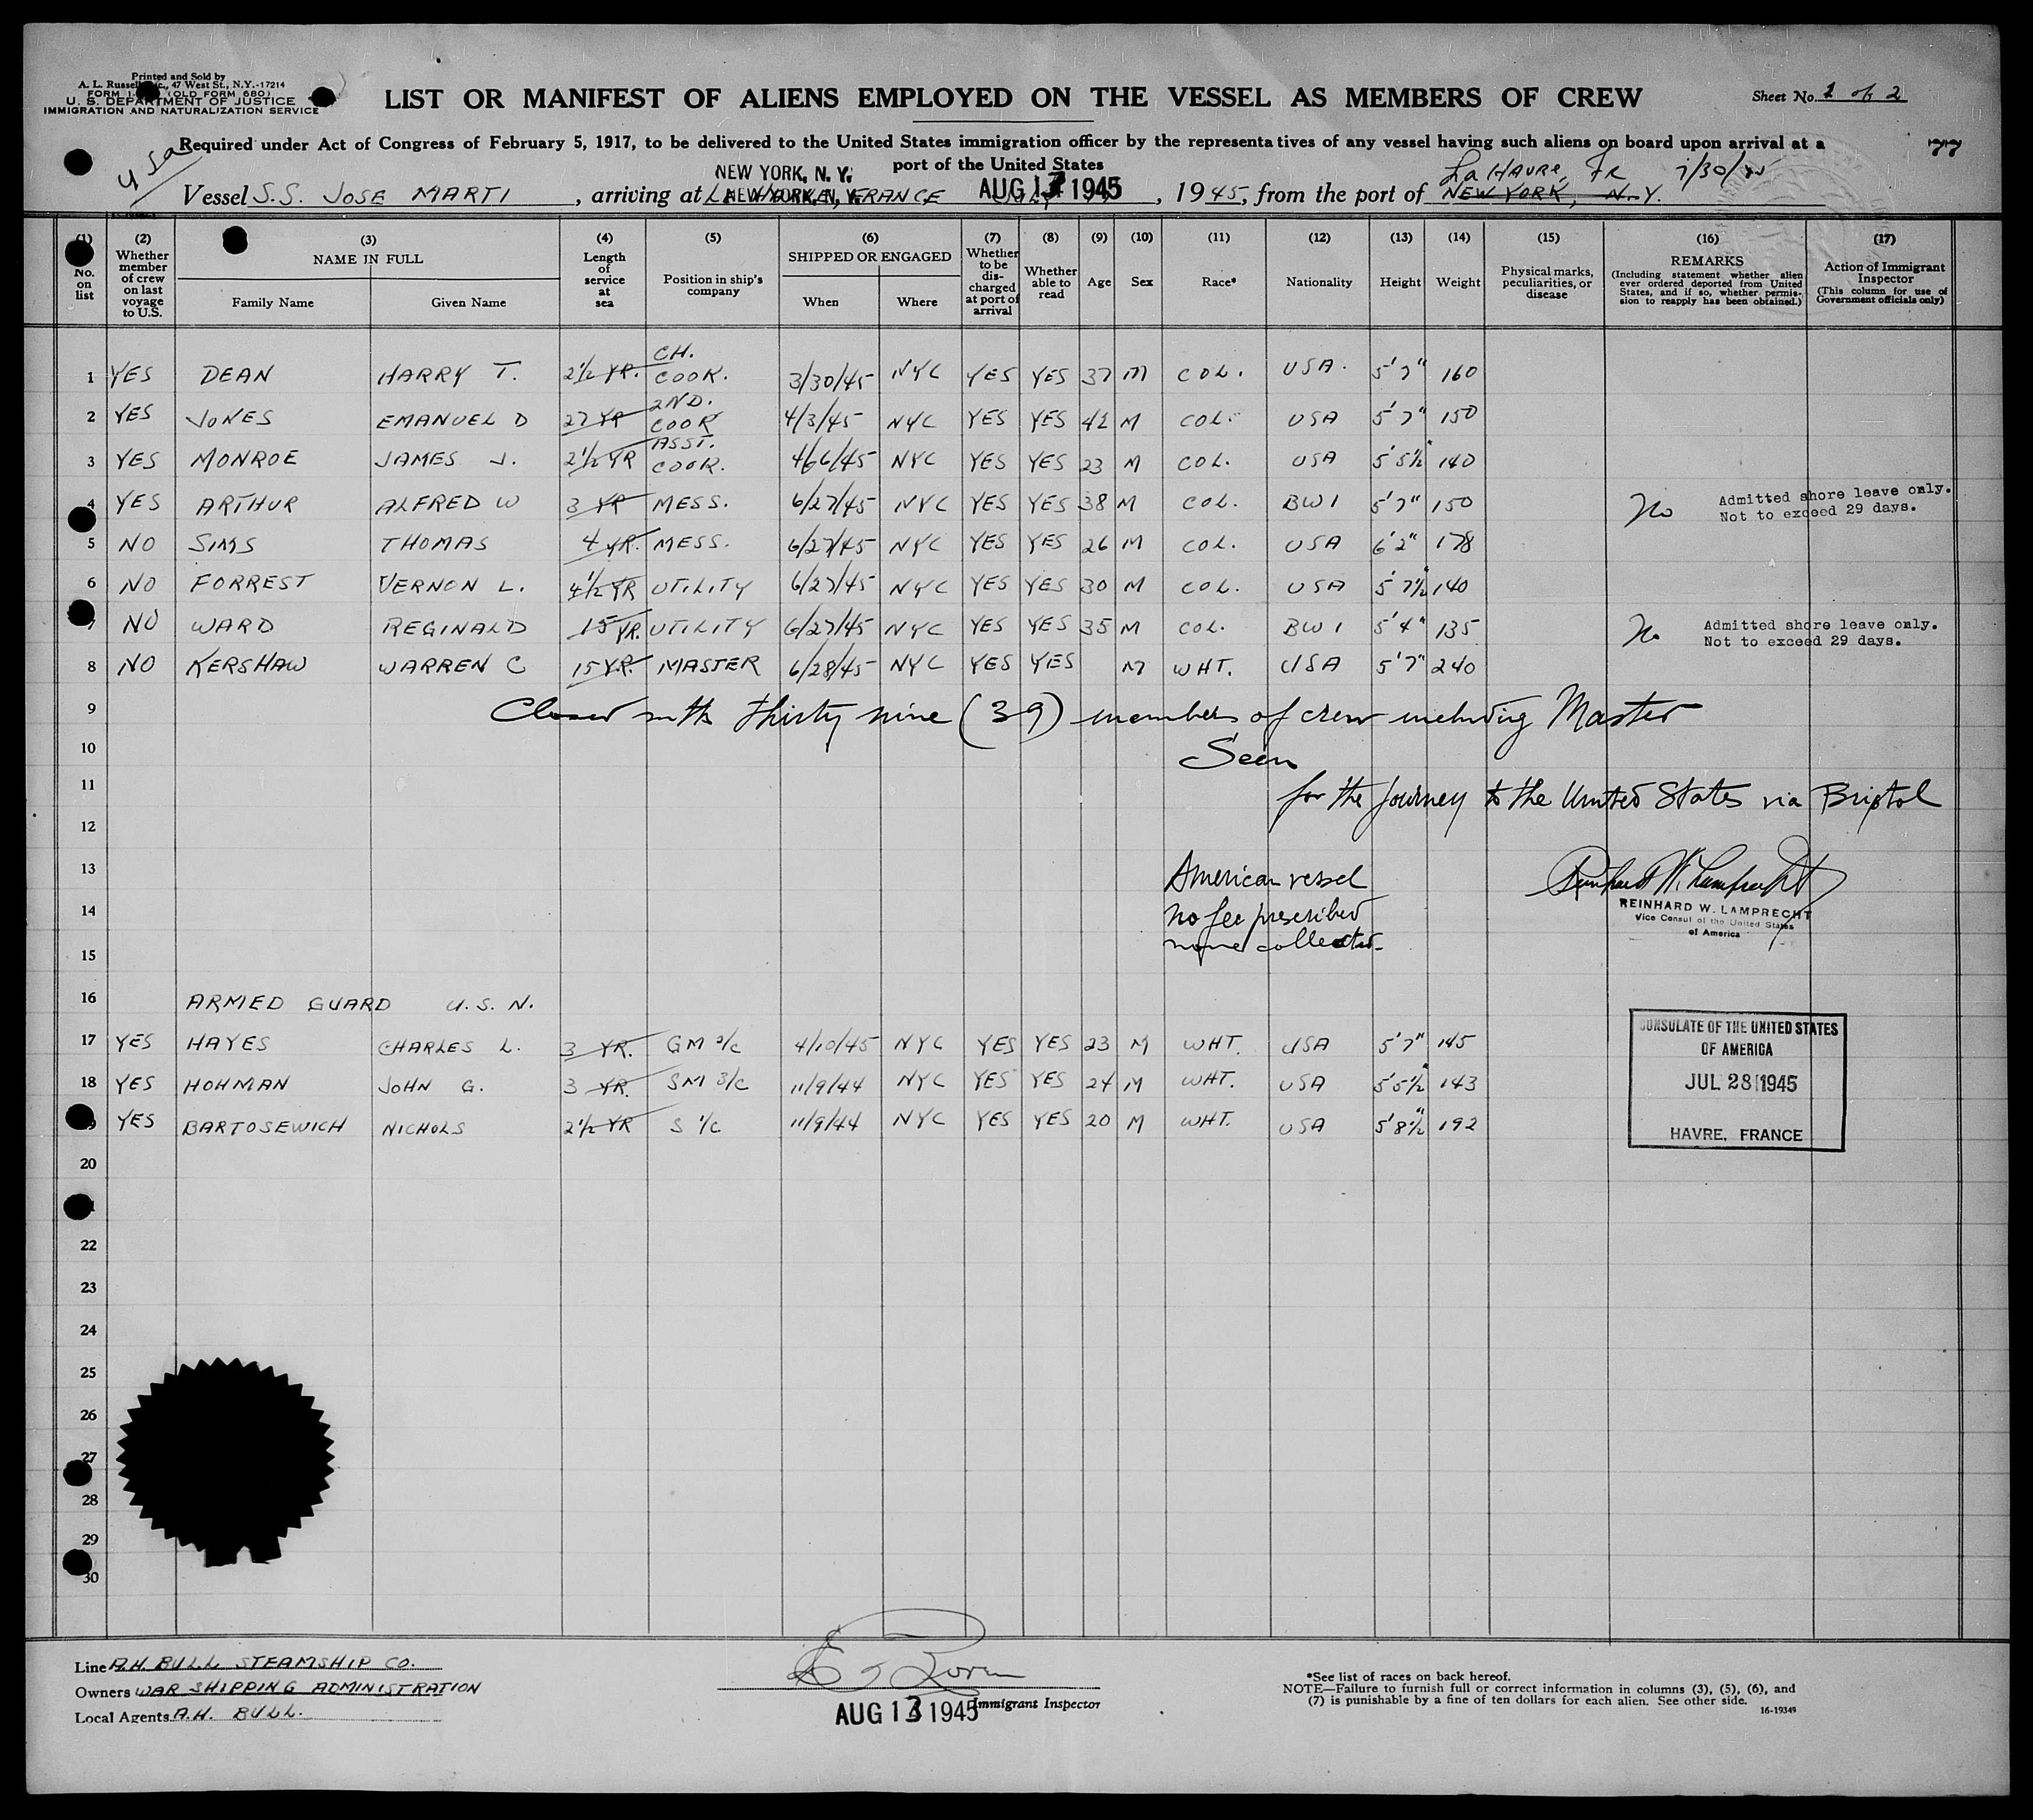 Printed and Sold by
A. L. Russell, Inc., 47 West St., N.Y.-17214
FORM (OLD FORM 680)
U. S. DEPARTMENT OF JUSTICE
IMMIGRATION AND NATURALIZATION SERVICE
LIST OR MANIFEST OF ALIENS EMPLOYED ON THE VESSEL AS MEMBERS OF CREW
Sheet No. 2 of 2
Required under Act of Congress of February 5, 1917, to be delivered to the United States immigration officer by the representatives of any vessel having such aliens on board upon arrival at a
port of the United States
77
USA
NEW YORK, N. Y.
La HAVRE, FR 7/30/45
Vessel S.S. JOSE MARTI, arriving at FRANCE AUG 1 1945, 1945, from the port of NEW YORK, N.Y.
(1) No. on list
(2) Whether member of crew on last voyage to U.S.
(3) NAME IN FULL Family Name Given Name
(4) Length of service at sea
(5) Position in ship's company
(6) SHIPPED OR ENGAGED When Where
(7) Whether to be discharged at port of arrival
(8) Whether able to read
(9) Age
(10) Sex
(11) Race*
(12) Nationality
(13) Height
(14) Weight
(15) Physical marks, peculiarities, or disease
(16) REMARKS (Including statement whether alien ever ordered deported from United States, and if so, whether permission to reapply has been obtained.)
(17) Action of Immigrant Inspector (This column for use of Government officials only)
1 YES DEAN HARRY T. 2½ YR. CH. COOK. 3/30/45 NYC YES YES 37 M COL. USA. 5'7" 160
2 YES JONES EMANUEL D 27 YR 2ND. COOK 4/3/45 NYC YES YES 42 M COL. USA 5'7" 150
3 YES MONROE JAMES J. 2½ YR ASST. COOK. 4/6/45 NYC YES YES 23 M COL. USA 5'5½" 140
4 YES ARTHUR ALFRED W 3 YR MESS. 6/27/45 NYC YES YES 38 M COL. BWI 5'7" 150 No Admitted shore leave only. Not to exceed 29 days.
5 NO SIMS THOMAS 4 YR. MESS. 6/27/45 NYC YES YES 26 M COL. USA 6'2" 178
6 NO FORREST VERNON L. 4½ YR UTILITY 6/27/45 NYC YES YES 30 M COL. USA 5'7½" 140
7 NO WARD REGINALD 15 YR. UTILITY 6/27/45 NYC YES YES 35 M COL. BWI 5'4" 135 No Admitted shore leave only. Not to exceed 29 days.
8 NO KERSHAW WARREN C 15 YR. MASTER 6/28/45 NYC YES YES M WHT. USA 5'7" 240
9 Closed with thirty nine (39) members of crew including Master
10 Seen
11 for the journey to the United States via Bristol
12
13 American vessel
14 no fee prescribed
none collected.
REINHARD W. LAMPRECHT
Vice Consul of the United States
of America
15
16 ARMED GUARD U.S.N.
17 YES HAYES CHARLES L. 3 YR. GM 3/C 4/10/45 NYC YES YES 23 M WHT. USA 5'7" 145
18 YES HOHMAN JOHN G. 3 YR. SM 3/C 11/9/44 NYC YES YES 24 M WHT. USA 5'5½" 143
YES BARTOSEWICH NICHOLS 2½ YR S 1/C 11/9/44 NYC YES YES 20 M WHT. USA 5'8½" 192
CONSULATE OF THE UNITED STATES
OF AMERICA
JUL 28 1945
HAVRE, FRANCE
20
22
23
24
25
26
27
28
29
30
Line A.H. BULL STEAMSHIP CO.
Owners WAR SHIPPING ADMINISTRATION
Local Agents A.H. BULL.
Immigrant Inspector
AUG 13 1945
*See list of races on back hereof.
NOTE—Failure to furnish full or correct information in columns (3), (5), (6), and
(7) is punishable by a fine of ten dollars for each alien. See other side.
16-19349